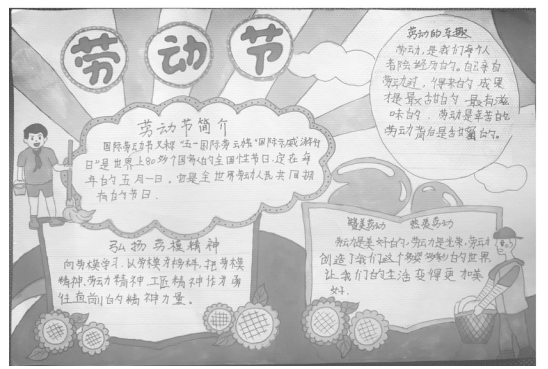 劳动节
劳动的乐趣
劳动,是我们每个人
都应经历的。自己辛自
劳动过,得来的成果
才是最甜的,最有滋
味的。劳动是辛苦的
劳动背后是甜蜜的。
劳动节简介
国际劳动节又称"五一国际劳动节""国际示威游行
日"是世界上80多个国家的全国性节日。定在每
年的五月一日。它是全世界劳动人民共同拥
有的节日
弘扬劳模精神
向劳模学习,以劳模为榜样,把劳模
精神,劳动精神,工匠精神作为勇
往直前的精神力量。
赞美劳动 热爱劳动
劳动是美好的,劳动是光荣,劳动
创造了我们这个多姿多彩的世界
让我们的生活变得更加美
好。